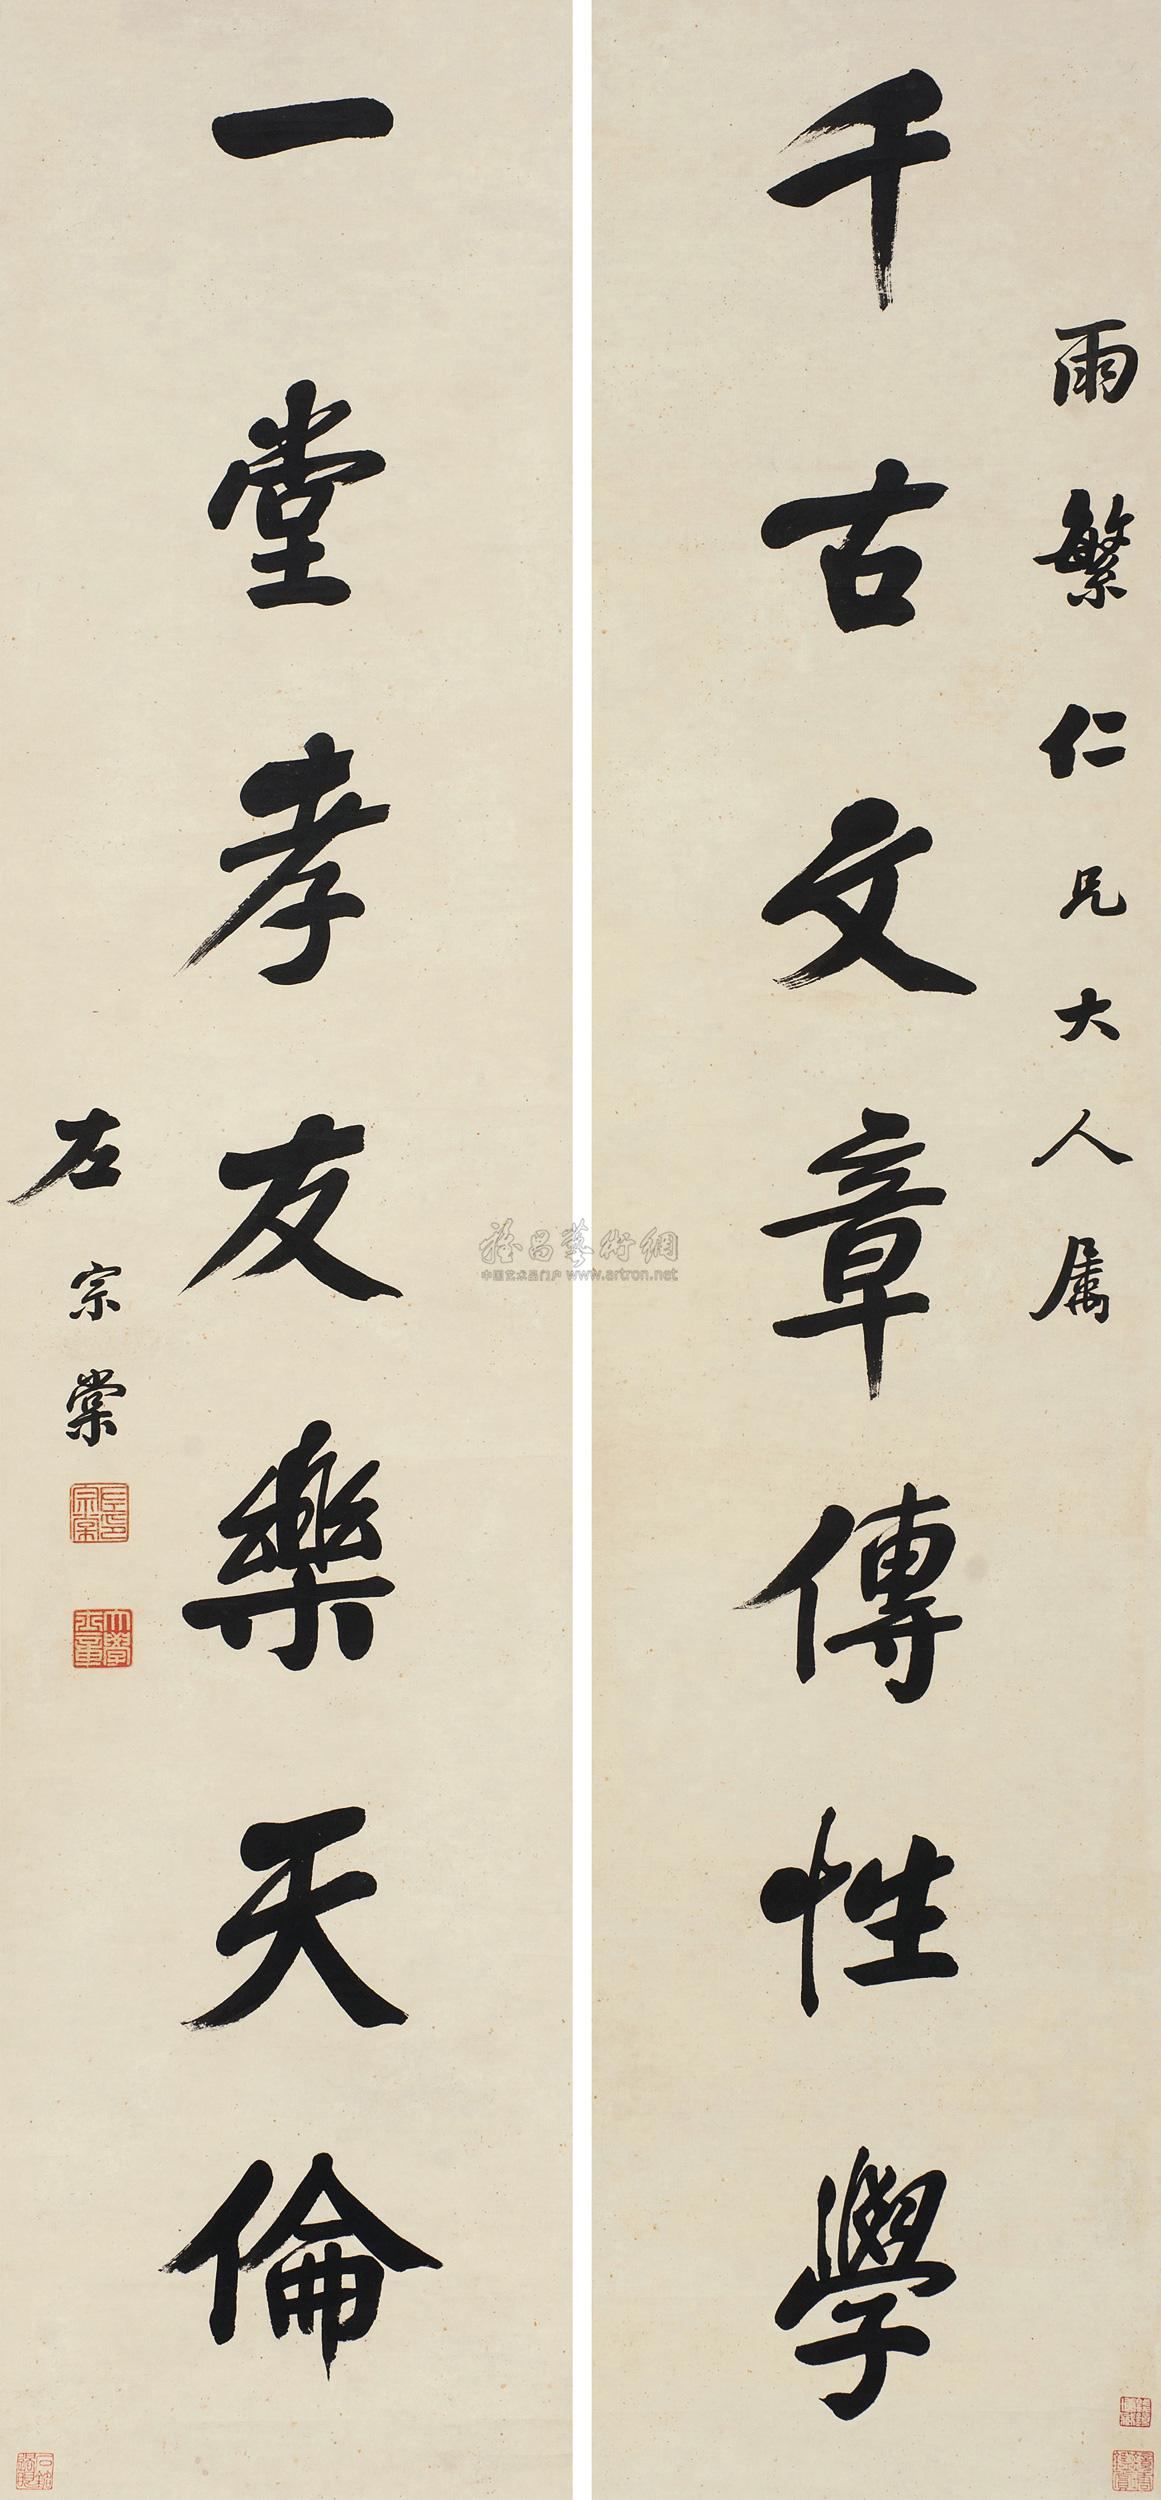 雨繁仁兄大人属
千古文章傳性學
一堂孝友樂天倫
左宗棠
雅昌藝術網
中国艺术品门户 www.artron.net